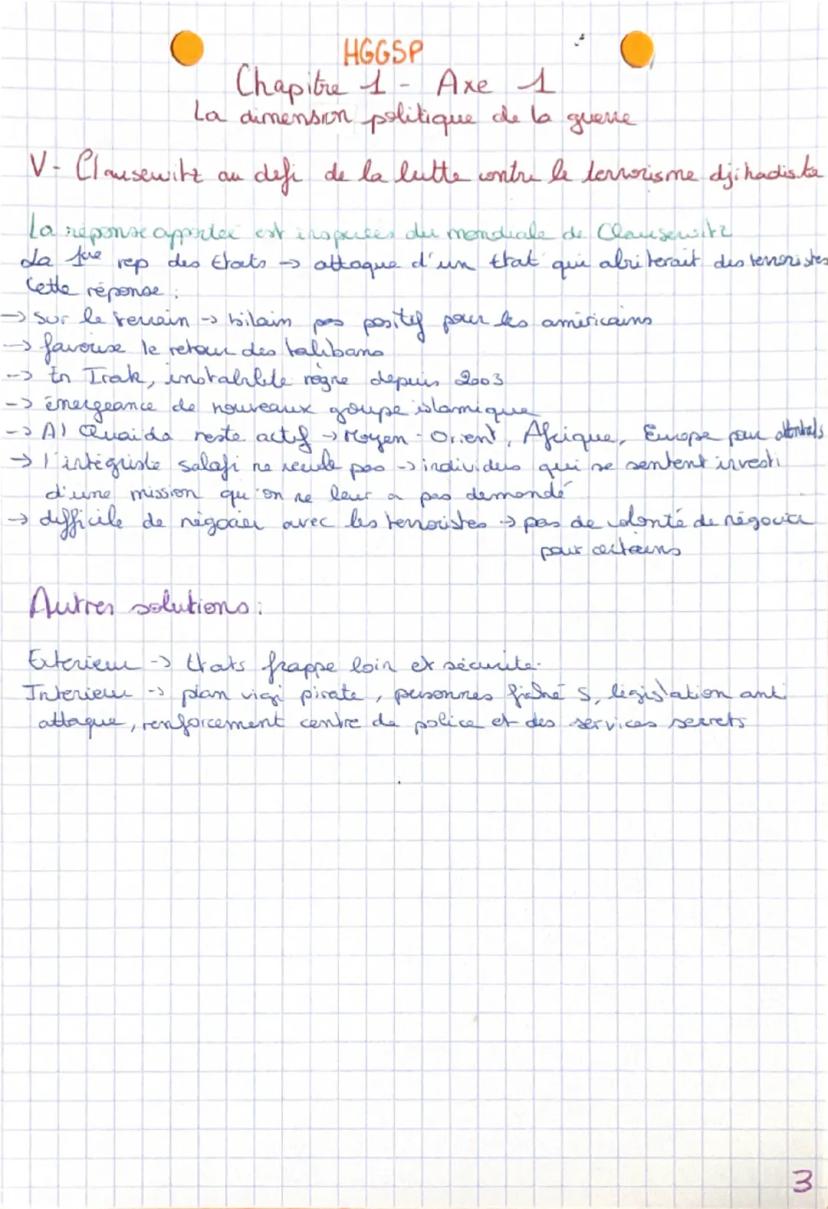 HGGSP
Chapitre 1 - Axe 1
La dimension politique de la guerre
V- Clausewitz au defi de la lutte contre le terrorisme djihadiste
La réponse apportée est inspirées du mondiale de Clausewitz
La 1ère rep des Etats → attaque d'un Etat qui abriterait des terroristes
Cette réponse :
→ sur le terrain → bilain pas positif pour les américains
→ favorise le retour des talibans
→ En Irak, instabilité règne depuis 2003
→ émergeance de nouveaux goupe islamique
→ Al Quaida reste actif → Moyen-Orient, Afrique, Europe pour attentats
→ l'intégriste salafi ne recule pas → individus qui se sentent investi
d'une mission qu'on ne leur a pas demandé
→ difficile de négocier avec les terroistes → pas de volonté de négocier
pour certains
Autres solutions :
Exterieur → Etats frappe loin et sécurité.
Interieur → plan vigi pirate, personnes fiché S, législation anti
attaque, renforcement centre de police et des services secrets
3